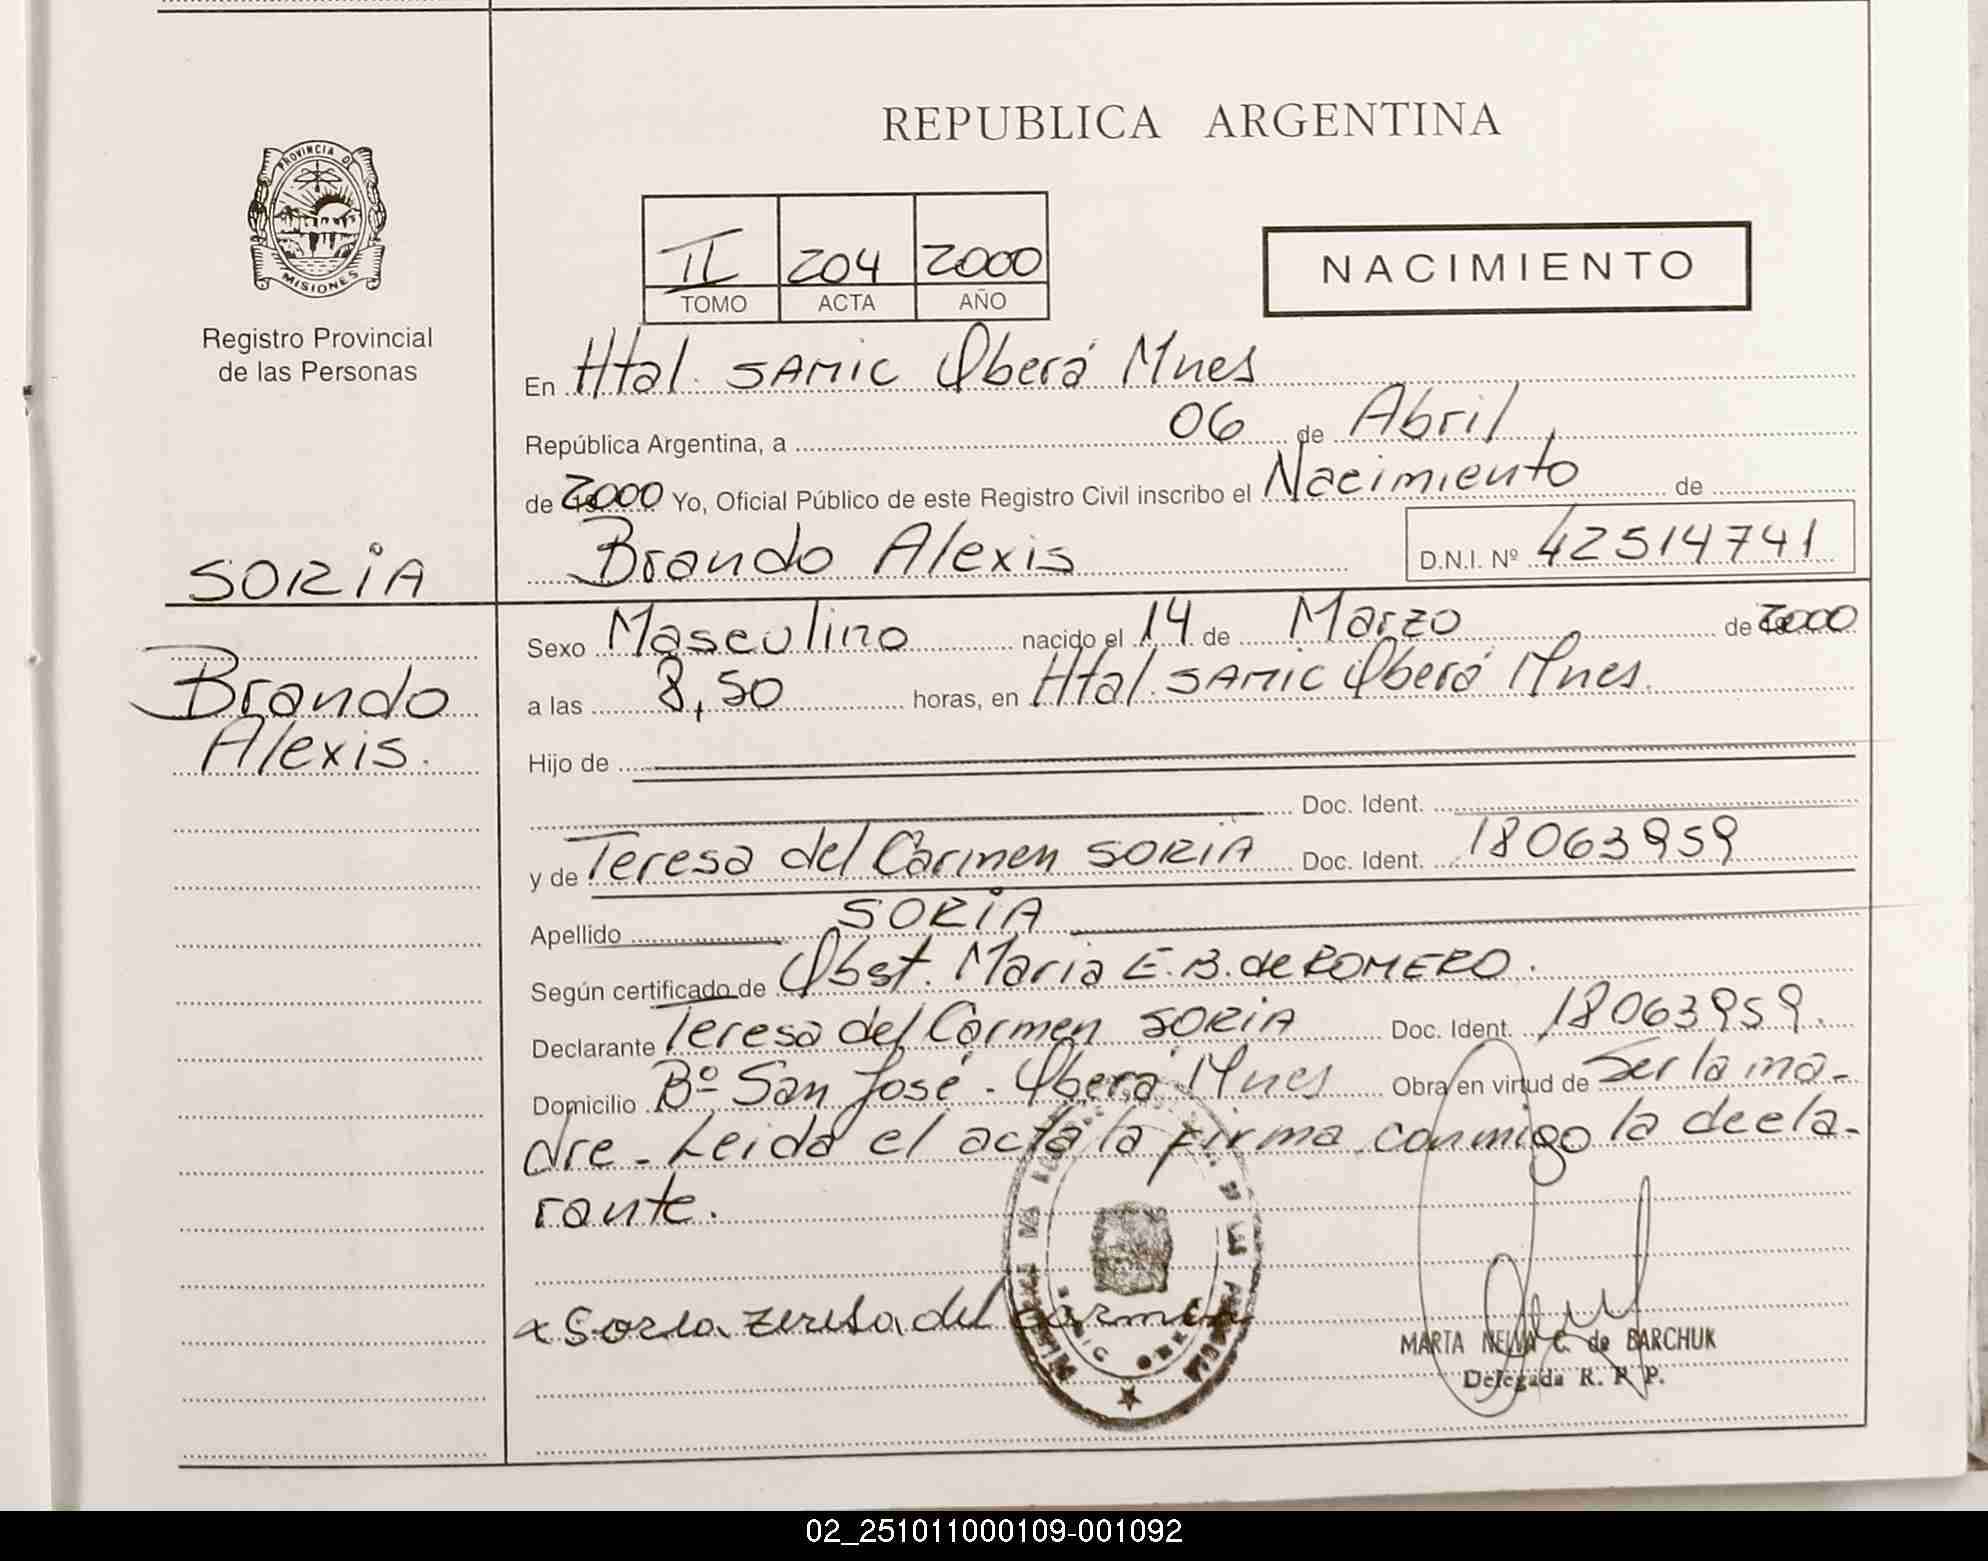 REPUBLICA ARGENTINA
PROVINCIA DE
MISIONES
Registro Provincial
de las Personas
II 204 2000
TOMO ACTA AÑO
NACIMIENTO
En Htal. SAMIC Oberá Mnes
República Argentina, a 06 de Abril
de 2000 Yo, Oficial Público de este Registro Civil inscribo el Nacimiento de
Brando Alexis D.N.I. Nº 42514741
SORIA
Brando
Alexis.
Sexo Masculino nacido el 14 de Marzo de 2000
a las 8,50 horas, en Htal. SAMIC Oberá Mnes.
Hijo de
Doc. Ident.
y de Teresa del Carmen SORIA Doc. Ident. 18063959
Apellido SORIA
Según certificado de Obst. Maria E. B. de ROMERO.
Declarante Teresa del Carmen SORIA Doc. Ident. 18063959.
Domicilio Bº San José - Oberá Mnes Obra en virtud de Ser la ma-
dre - Leida el acta la firma conmigo la decla-
rante.
x Soria Teresa del Carmen
MARTA NELVA C. de BARCHUK
Delegada R. P. P.
02_251011000109-001092